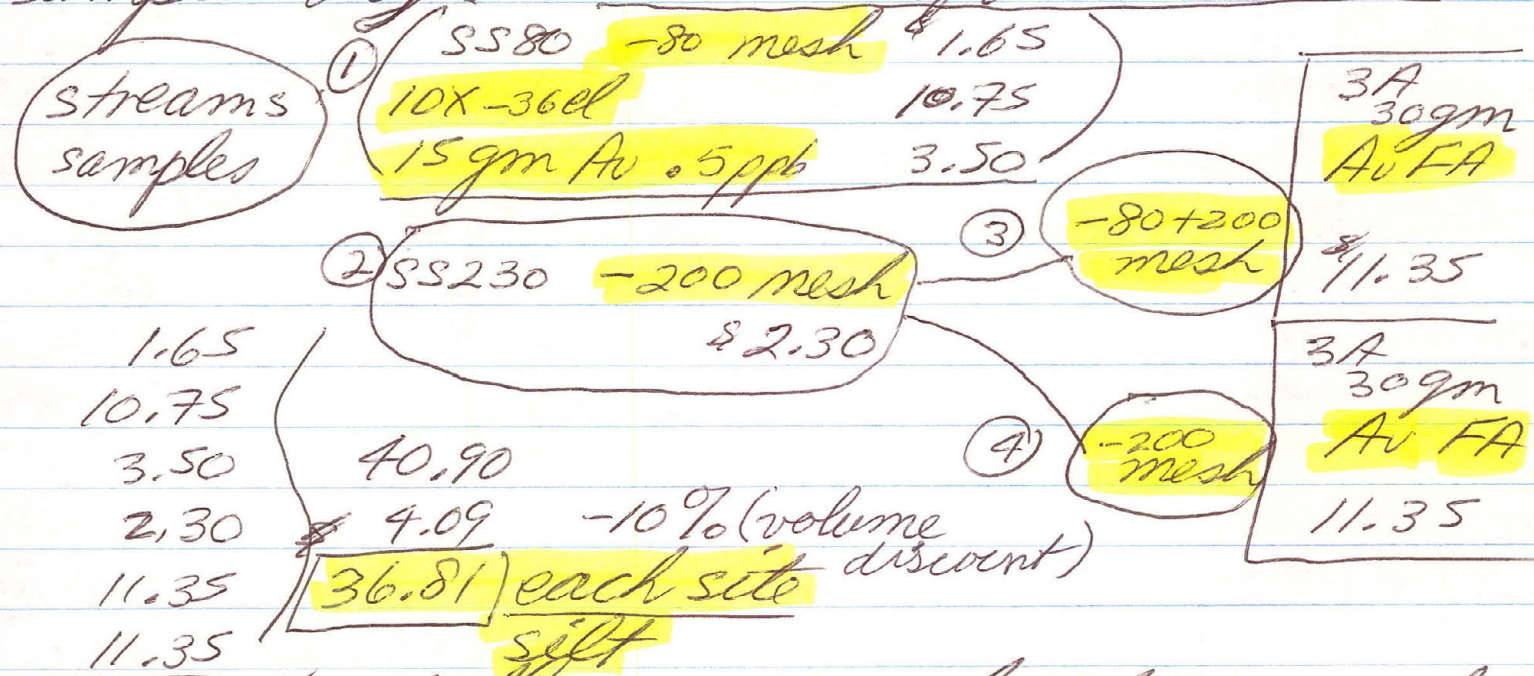 streams
samples
① SS80 -80 mesh $1.65
10X-36el 10.75
15 gm Au .5ppb 3.50
② SS230 -200 mesh
$2.30
③ -80+200
mesh
3A
30gm
Au FA
$11.35
④ -200
mesh
3A
30gm
Au FA
11.35
1.65
10.75
3.50
2.30
11.35
11.35
40.90
4.09 -10% (volume
discount)
36.81 each site
silt